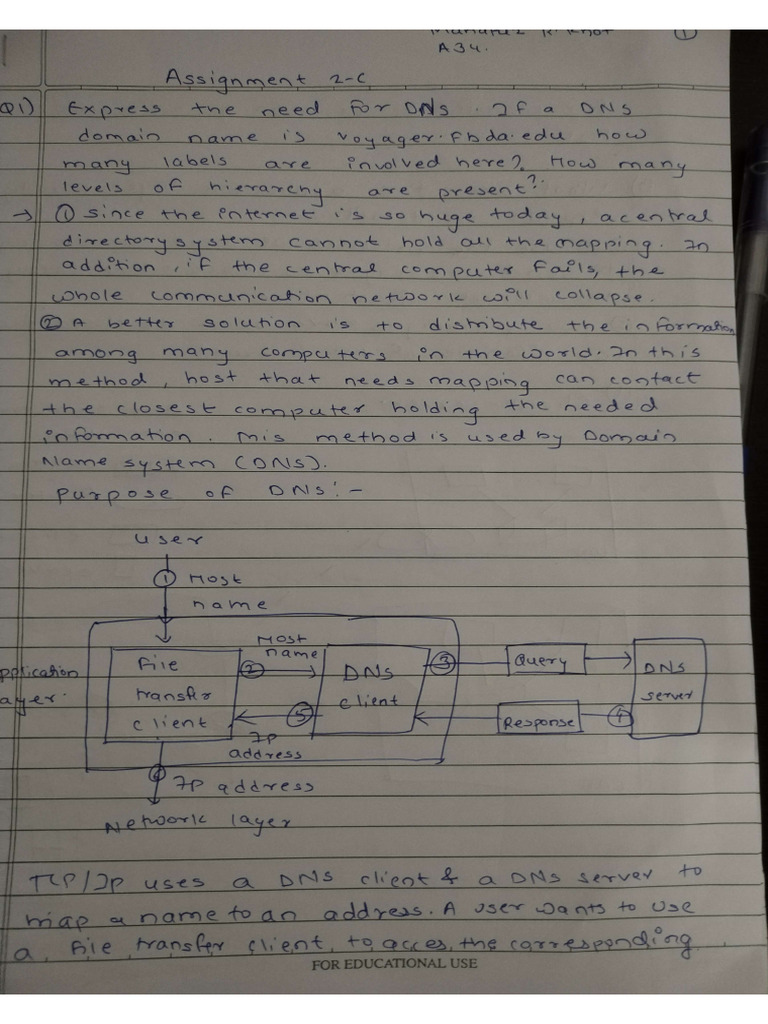 A34.
Assignment 2-C
Q1) Express the need for DNS. If a DNS
domain name is voyager.fbda.edu how
many labels are involved here? How many
levels of hierarchy are present?
→ ① since the internet is so huge today, a central
directory system cannot hold all the mapping. In
addition, if the central computer fails, the
whole communication network will collapse.
② A better solution is to distribute the information
among many computers in the world. In this
method, host that needs mapping can contact
the closest computer holding the needed
information. This method is used by Domain
Name system (DNS).
Purpose of DNS:-
user
① Host
name
Host
name
File
transfer
client
②
DNS
client
③
Query
DNS
server
pplication
ayer.
⑤
Response
④
IP
address
IP address
Network layer
TCP/IP uses a DNS client & a DNS server to
map a name to an address. A user wants to use
a file transfer client to acces the corresponding
FOR EDUCATIONAL USE